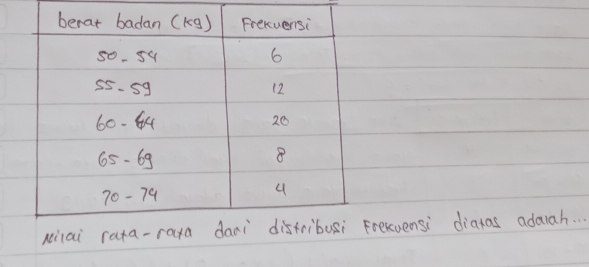 berat badan (kg) Frekuensi
50 - 54 6
55 - 59 12
60 - 64 20
65 - 69 8
70 - 74 4
Nilai rata-rata dari distribusi Frekuensi diatas adalah...